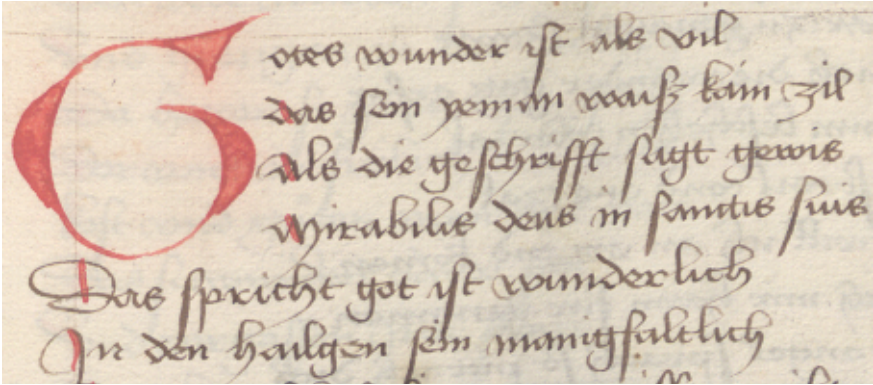 Gotes wunder ist als vil
das sein yeman waisz kain zil
als die geschrifft sagt gewis
Mirabilis deus in sanctis suis
Das spricht got ist wunderlich
In den hailgen sein manigfaltlich